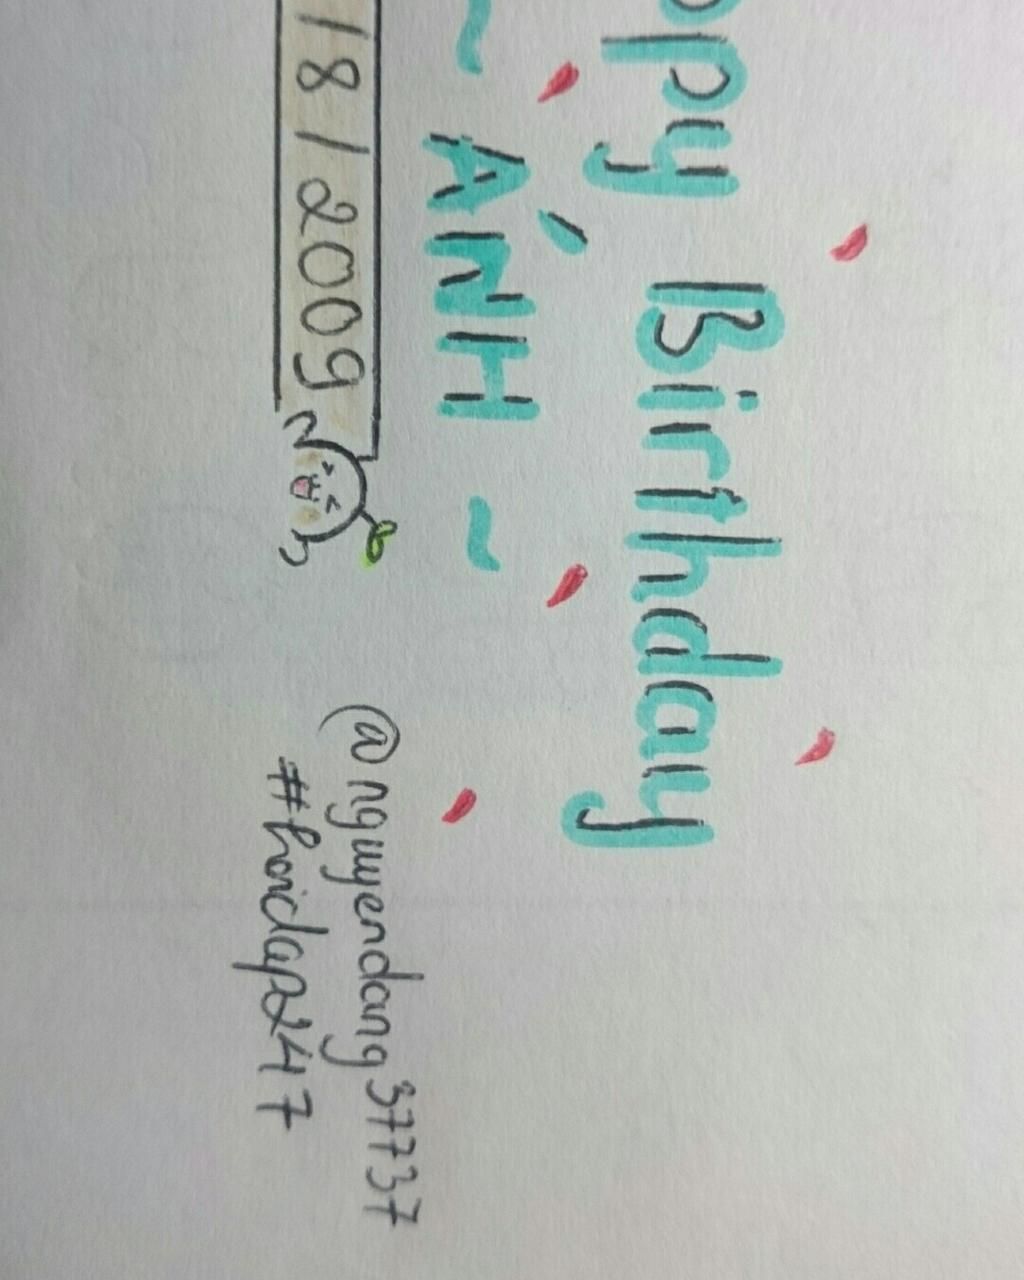 ppy Birthday
~ ÁNH ~
/8/2009
@nguyendang37737
#hoidap247